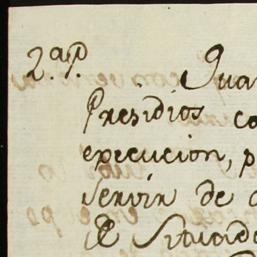 2.ª p.
Qua
Presidios co
execucion, p
servir de
El Situad